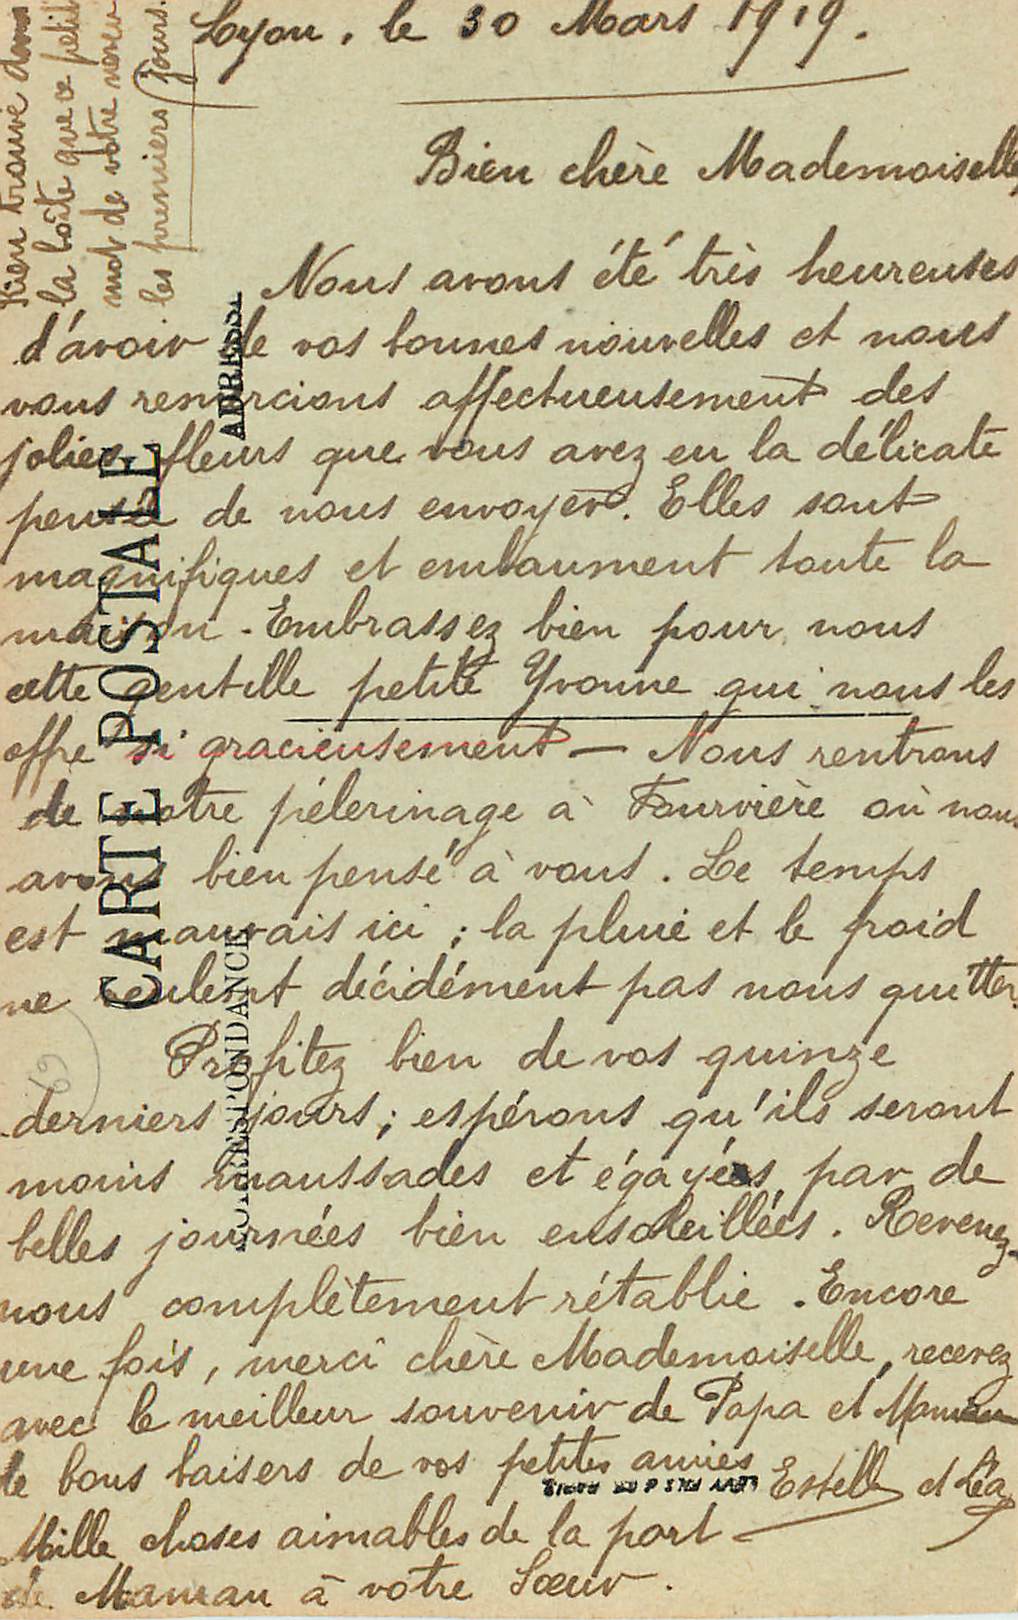 Lyon, le 30 Mars 1919.
Bien chère Mademoiselle,
Nous avons été très heureuses
d'avoir de vos bonnes nouvelles et nous
vous remercions affectueusement des
jolies fleurs que vous avez eu la délicate
pensée de nous envoyer. Elles sont
magnifiques et embaument toute la
maison. Embrassez bien pour nous
cette gentille petite Yvonne qui nous les
offre si gracieusement — Nous rentrons
de notre pélerinage à Fourvière où nous
avons bien pensé à vous. Le temps
est mauvais ici ; la pluie et le froid
ne veulent décidément pas nous quitter.
Profitez bien de vos quinze
derniers jours ; espérons qu'ils seront
moins maussades et égayés par de
belles journées bien ensoleillées. Revenez-
nous complètement rétablie. Encore
une fois, merci chère Mademoiselle, recevez
avec le meilleur souvenir de Papa et Maman
de bons baisers de vos petites amies
Estelle et Léa
Mille choses aimables de la part
de Maman à votre Soeur.
trouvé dans
la boîte que ce petit
mot de votre neveu
les premiers jours.
CARTE POSTALE
CORRESPONDANCE
ADRESSE
69